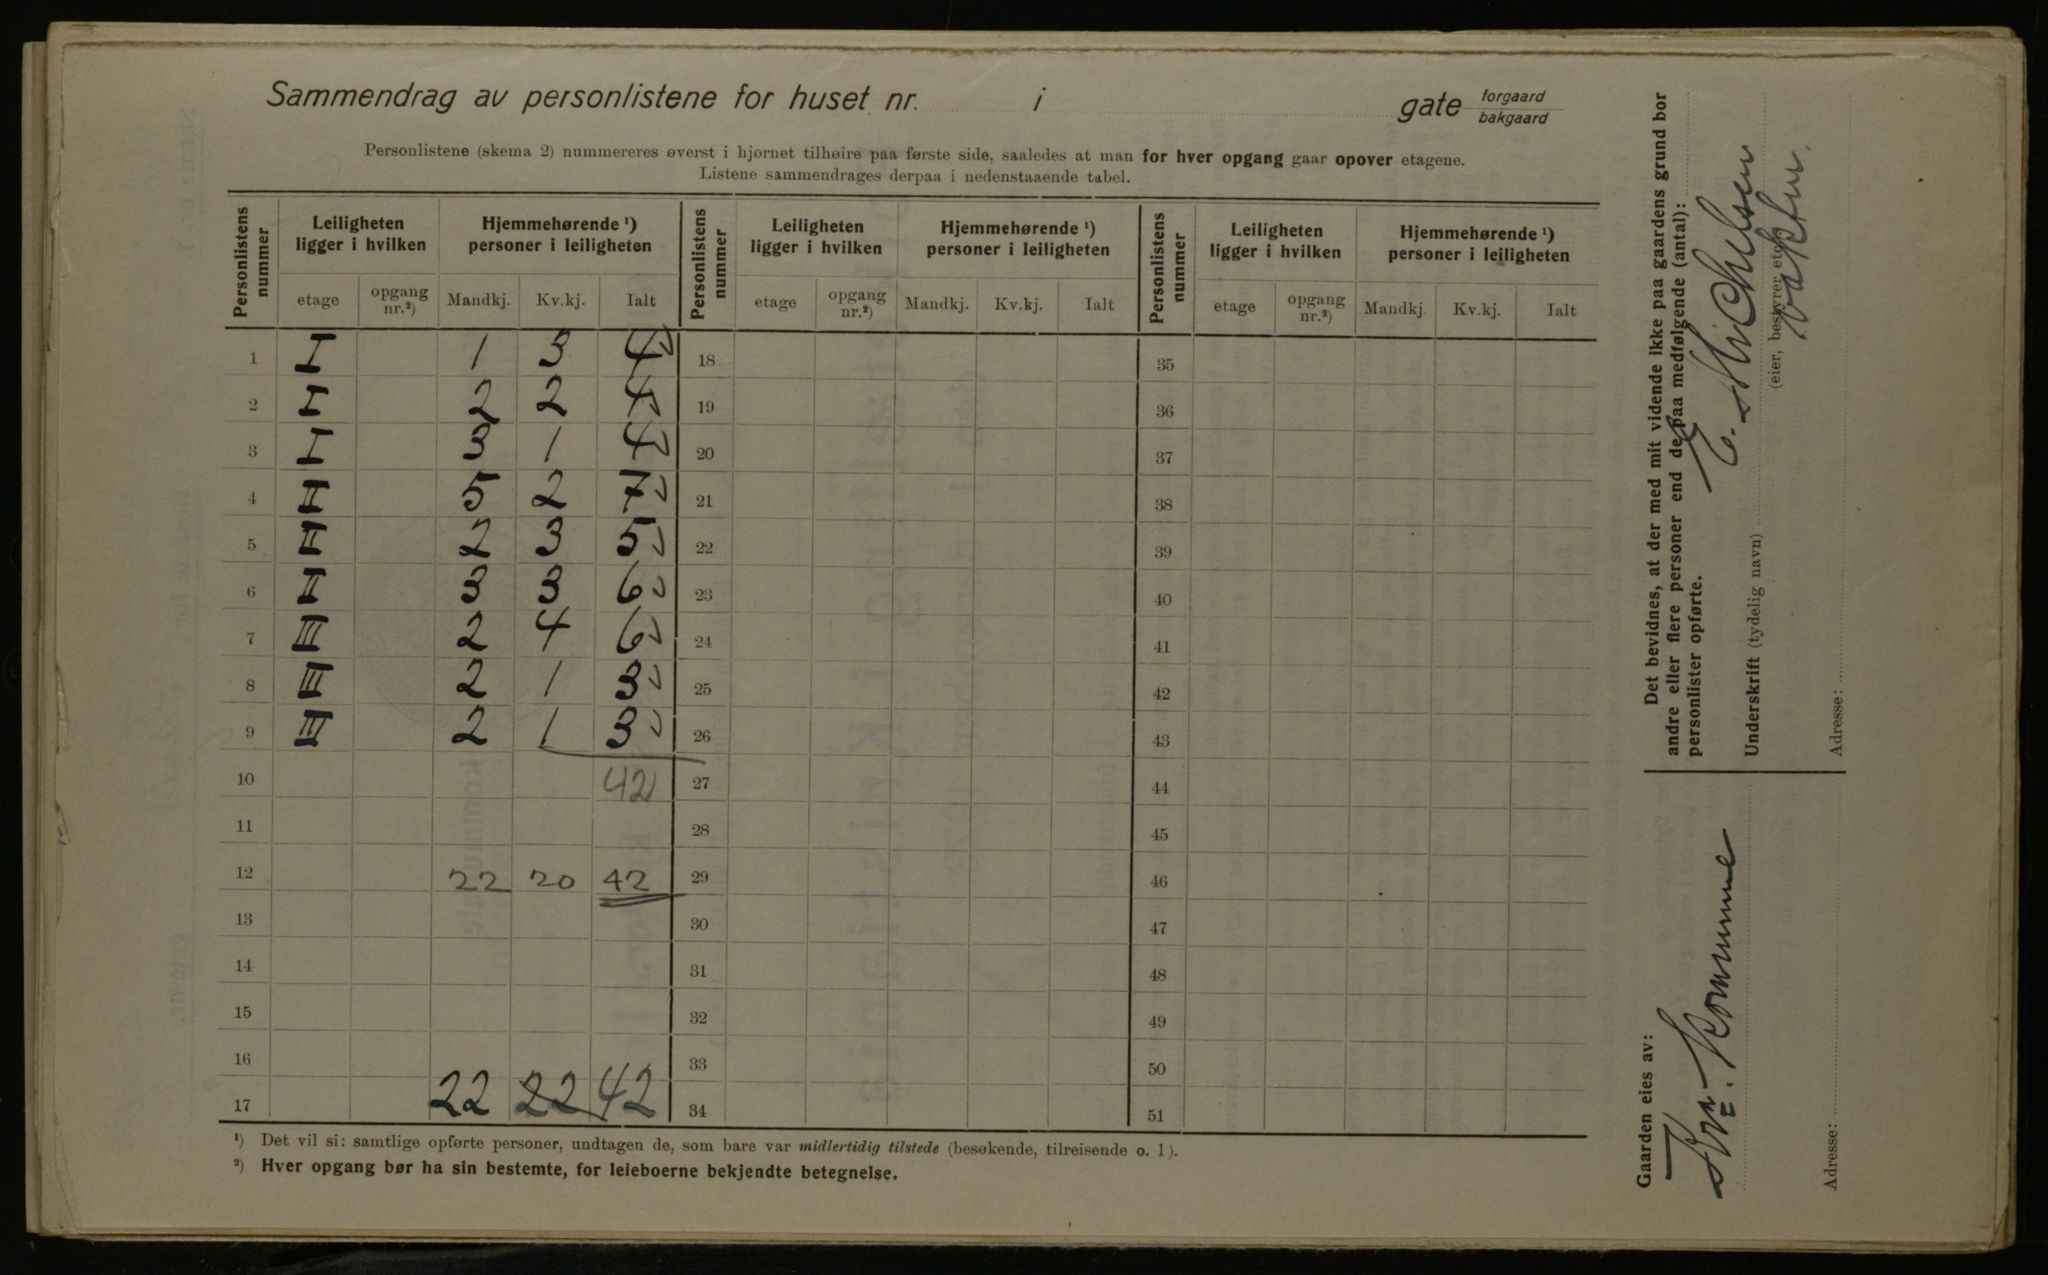 Sammendrag av personlistene for huset nr. i gate forgaard bakgaard
Personlistene (skema 2) nummereres øverst i hjørnet tilhøire paa første side, saaledes at man for hver opgang gaar opover etagene.
Listene sammendrages derpaa i nedenstaaende tabel.
Personlistens nummer Leiligheten ligger i hvilken Hjemmehørende ¹) personer i leiligheten Personlistens nummer Leiligheten ligger i hvilken Hjemmehørende ¹) personer i leiligheten Personlistens nummer Leiligheten ligger i hvilken Hjemmehørende ¹) personer i leiligheten
etage opgang nr.²) Mandkj. Kv.kj. Ialt etage opgang nr.²) Mandkj. Kv.kj. Ialt etage opgang nr.²) Mandkj. Kv.kj. Ialt
1 I 1 3 4 18 35
2 I 2 2 4 19 36
3 I 3 1 4 20 37
4 II 5 2 7 21 38
5 II 2 3 5 22 39
6 II 3 3 6 23 40
7 III 2 4 6 24 41
8 III 2 1 3 25 42
9 III 2 1 3 26 43
10 42 27 44
11 28 45
12 22 20 42 29 46
13 30 47
14 31 48
15 32 49
16 33 50
17 22 22 42 34 51
¹) Det vil si: samtlige opførte personer, undtagen de, som bare var midlertidig tilstede (besøkende, tilreisende o. l).
²) Hver opgang bør ha sin bestemte, for leieboerne bekjendte betegnelse.
Det bevidnes, at der med mit vidende ikke paa gaardens grund bor
andre eller flere personer end de paa medfølgende (antal):
personlister opførte.
E. Michelsen
Underskrift (tydelig navn)
(eier, bestyrer etc.)
Vaktm.
Adresse:
Gaarden eies av:
Kra. Kommune
Adresse: